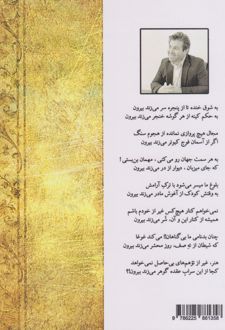 به شوق خنده تا از پنجره سر می‌زند بیرون
به حکم کینه از هر گوشه خنجر می‌زند بیرون
مجال هیچ پروازی نمانده از هجوم سنگ
اگر از آسمان فوج کبوتر می‌زند بیرون
به هر سمت جهان رو می‌کنی، مهمان بن‌بستی!
که جای میزبان، دیوار از در می‌زند بیرون
بلوغ ما میسر می‌شود با ترک آرامش
به وقتش کودک از آغوش مادر می‌زند بیرون
نمی‌خواهم کنار هیچ‌کس غیر از خودم باشم
همیشه از کنار این و آن، شر می‌زند بیرون
چنان بدنامی ما بی‌گناهان!! می‌کند غوغا
که شیطان از ته صف، روز محشر می‌زند بیرون
هنر، غیر از توهم‌های بی‌حاصل نمی‌خواهد
کجا از این سراب عقده گوهر می‌زند بیرون؟!
9 786225 861358